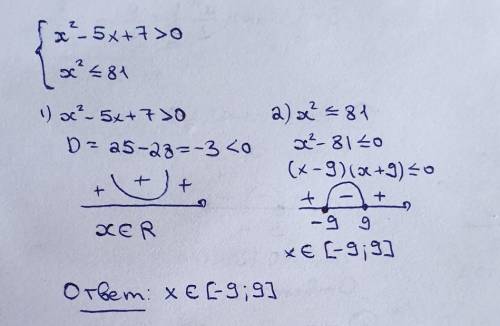 x² - 5x + 7 > 0
x² ≤ 81
1) x² - 5x + 7 > 0
D = 25 - 28 = -3 < 0
+ + +
x ∈ R
2) x² ≤ 81
x² - 81 ≤ 0
(x - 9)(x + 9) ≤ 0
+ - +
-9 9
x ∈ [-9; 9]
Ответ: x ∈ [-9; 9]